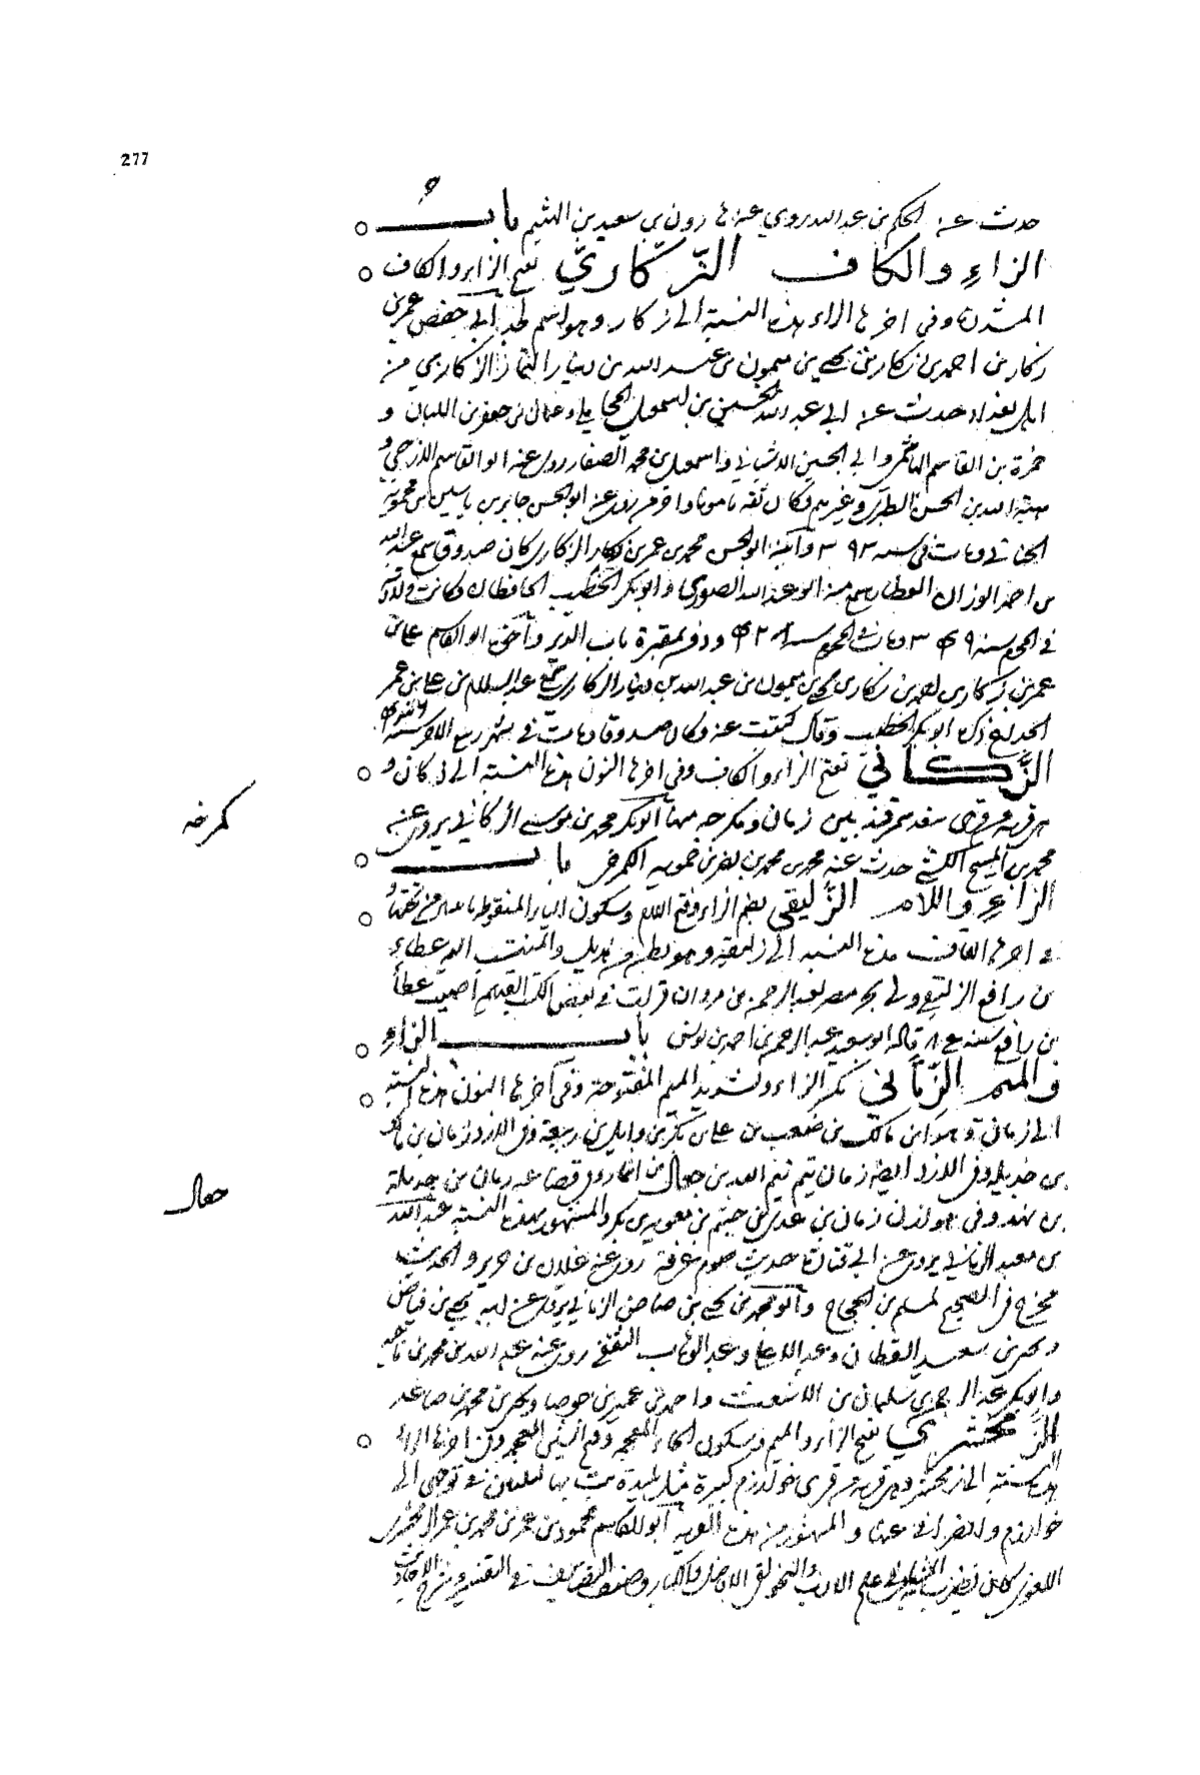 277
حدث عنه الحكم بن عبد الله روى عنه هارون بن سعيد بن الهيثم باب
الزاء والكاف الزّكّاريّ بفتح الزاء والكاف
المشددة وفي اخرها الراء هذه النسبة الى زكار وهو اسم لجد ابي حفص عمر بن
زكار بن احمد بن زكار بن يحيى بن ميمون بن عبد الله بن دينار التمار الزكاري من
اهل بغداد حدث عن ابي عبد الله الحسين بن اسمعيل المحاملي وعثمان بن جعفر بن اللبان و
حمزة بن القاسم الهاشمي وابي الحسين الاشناني واسمعيل بن محمد الصفار روى عنه ابو القاسم الازجي و
هبة الله بن الحسن الطبري وغيرهم وكان ثقة مامونا روى عنه ابو الحسن جابر بن ياسين بن محمويه
الحنائي ومات في سنة ٣٩٣ وابنه ابو الحسن محمد بن عمر بن زكار الزكاري كان صدوقا سمع عبد الله
بن احمد الوزان العطار سمع منه ابو عبد الله الصوري وابو بكر الخطيب الحافظان وكانت ولادته
في المحرم سنة ودفن بمقبرة باب الدير واخوه ابو القاسم علي بن
عمر بن زكار بن احمد بن زكار بن يحيى بن ميمون بن عبد الله بن دينار الزكاري سمع عبد السلام بن علي بن عمر
ذكره ابو بكر الخطيب وقال كتبت عنه وكان صدوقا ومات في شهر ربيع الاخر سنة
الزَّكاني بفتح الزاء والكاف وفي اخرها النون هذه النسبة الى زكان و
هي قرية من قرى سغد سمرقند بين زمان وكمرجه منها ابو بكر محمد بن موسى الزكاني يروي عن
محمد بن المسيح الكشي حدث عنه محمد بن محمد بن نصر بن حمويه الكمرجي باب
الزاء واللام الزُّلَيقي بضم الزاء وفتح اللام وسكون الياء المنقوطة باثنتين من تحتها
وفي اخرها القاف هذه النسبة الى زليقة وهو بطن من هذيل والمنتسب اليه عطاء
بن رافع الزليقي ولي بحر مصر لعبد الرحمن بن مروان قرأت في بعض الكتب القديمة اصيب عطاء
بن رافع سنة ٨٤ قاله ابو سعيد عبد الرحمن بن احمد بن يونس باب الزاء
والميم الزِّمّاني بكسر الزاء وتشديد الميم المفتوحة وفي آخرها النون هذه النسبة
الى زمان وهو ابن مالك بن صعب بن علي بن بكر بن وايل بن ربيعة وفي الازد زمان بن مالك
بن جديلة وفي الازد ايضا زمان بن تيم الله بن حقال بن انمار وفي قضاعة زمان بن حزيمة
بن نهد وفي هوازن زمان بن عدي بن جشم بن معوية بن بكر والمشهور بهذه النسبة عبد الله
بن معبد الزماني يروي عن ابي قتادة حديث صوم عرفة روى عنه غيلان بن جرير والحديث
مخرج في الصحيح لمسلم بن الحجاج وابو محمد بن يحيى بن فياض الزماني يروي عن ابيه يحيى بن فياض
ويحيى بن سعيد القطان وعبد الاعلى وعبد الوهاب الثقفي روى عنه عبد الله بن محمد بن ناجية
وابو بكر عبد الله بن سليمان بن الاشعث واحمد بن عمير بن جوصا ويحيى بن محمد بن صاعد
الزَّمَخْشَري بفتح الزاء والميم وسكون الخاء المعجمة وفتح الشين المعجمة وفي اخرها الراء
هذه النسبة الى زمخشر وهي قرية من قرى خوارزم كبيرة مثل بليدة بت بها ليلتين في توجهي الى
خوارزم وانصرافي عنها والمشهور من هذه القرية ابو القاسم محمود بن عمر بن محمد بن عمر الزمخشري
اللغوي كان يضرب به المثل في علم الادب والنحو لقي الافاضل والكبار وصنف التصانيف في التفسير وشرح الاحاديث
كمرخه
حقال